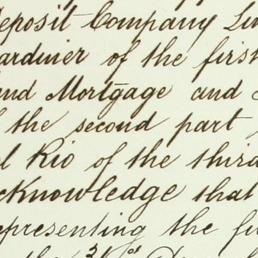 Deposit Company Lim
Gardiner of the first
and Mortgage and
the second part
Rio of the third
acknowledge that
representing the fu
the 31st Decem